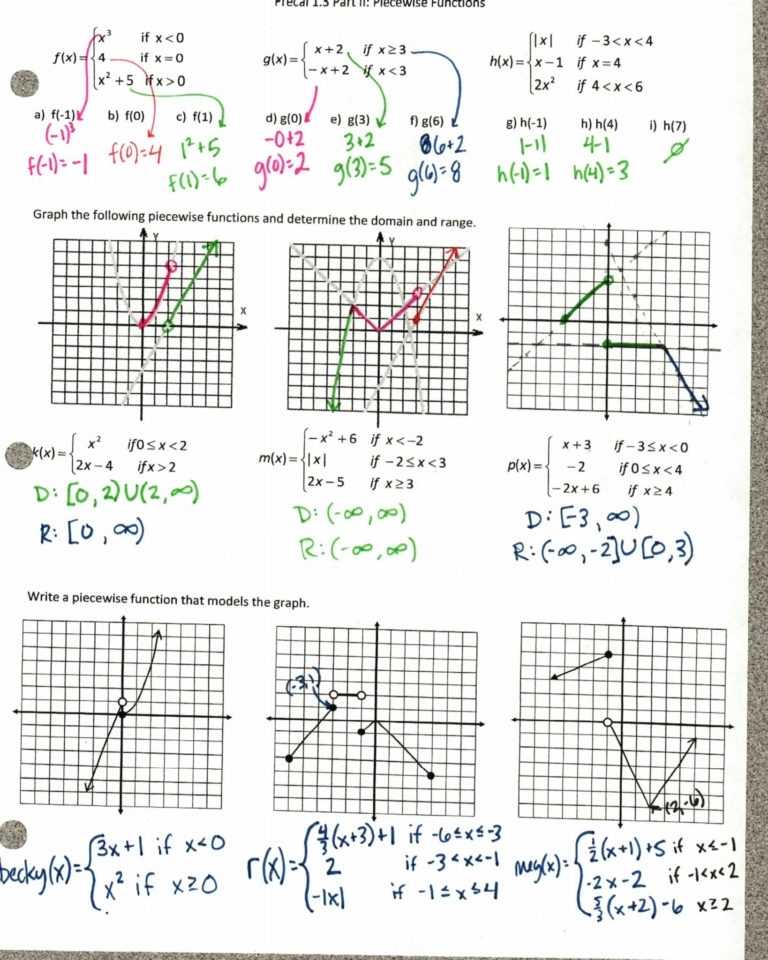 Precal 1.3 Part II: Piecewise Functions
f(x)= { x³ if x<0
4 if x=0
x²+5 if x>0
g(x)= { x+2 if x≥3
-x+2 if x<3
h(x)= { |x| if -3<x<4
x-1 if x=4
2x² if 4<x<6
a) f(-1) b) f(0) c) f(1) d) g(0) e) g(3) f) g(6) g) h(-1) h) h(4) i) h(7)
(-1)³
f(-1)=-1
f(0)=4
1²+5
f(1)=6
-0+2
g(0)=2
3+2
g(3)=5
6+2
g(6)=8
|-1|
h(-1)=1
4-1
h(4)=3
∅
Graph the following piecewise functions and determine the domain and range.
Y
X
Y
X
k(x)= { x² if 0≤x<2
2x-4 if x>2
D: [0,2)∪(2,∞)
R: [0,∞)
m(x)= { -x²+6 if x<-2
|x| if -2≤x<3
2x-5 if x≥3
D: (-∞,∞)
R: (-∞,∞)
p(x)= { x+3 if -3≤x<0
-2 if 0≤x<4
-2x+6 if x≥4
D: [-3,∞)
R: (-∞,-2]∪[0,3)
Write a piecewise function that models the graph.
(-3,1)
(2,-6)
becky(x)= { 3x+1 if x<0
x² if x≥0
r(x)= { 4/3(x+3)+1 if -6≤x≤-3
2 if -3<x<-1
-|x| if -1≤x≤4
meg(x)= { 1/2(x+1)+5 if x≤-1
-2x-2 if -1<x<2
5/3(x+2)-6 x≥2